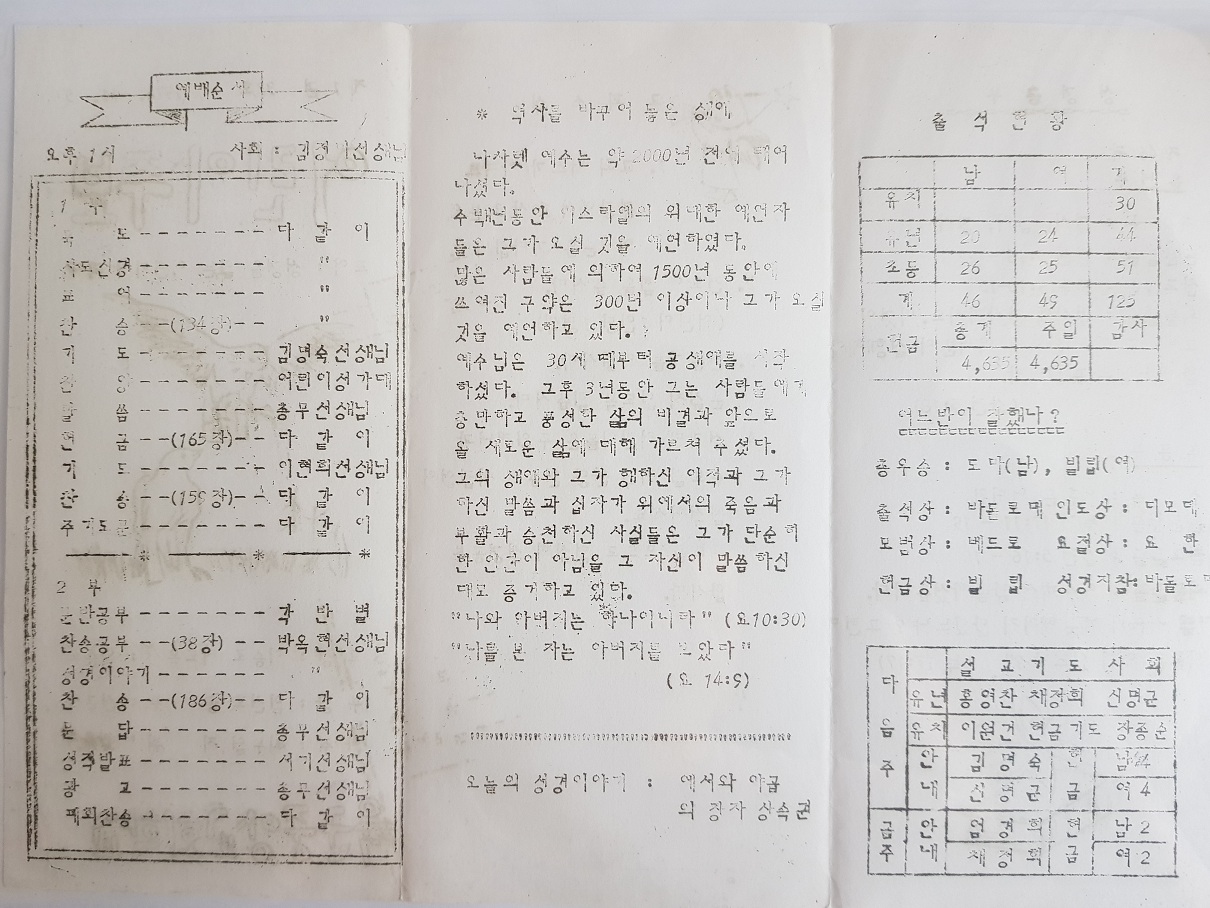 예배순서
오후 1시 사회 : 김정기선생님
1 부
묵 도 - - - - - - - 다 같 이
사도신경 - - - - - - - "
표 어 - - - - - - - "
찬 송 - -(134장)- - "
기 도 - - - - - - - 김명숙선생님
찬 양 - - - - - - - 어린이성가대
말 씀 - - - - - - - 총무선생님
헌 금 - -(165장)- - 다 같 이
기 도 - - - - - - - 이현희선생님
찬 송 - -(159장)- - 다 같 이
주기도문 - - - - - - - 다 같 이
2 부
분반공부 - - - - - - - 각 반 별
찬송공부 - -(38장) - - 박옥현선생님
성경이야기 - - - - - - "
찬 송 - -(186장)- - 다 같 이
문 답 - - - - - - - 총무선생님
성적발표 - - - - - - - 서기선생님
광 고 - - - - - - - 총무선생님
폐회찬송 - - - - - - - 다 같 이
* 역사를 바꾸어 놓은 생애
나사렛 예수는 약 2000년 전에 태어
나셨다.
수백년동안 이스라엘의 위대한 예언자
들은 그가 오실 것을 예언하였다.
많은 사람들에 의하여 1500년 동안에
쓰여진 구약은 300번 이상이나 그가 오실
것을 예언하고 있다.
예수님은 30세 때부터 공생애를 시작
하셨다. 그후 3년동안 그는 사람들에게
충만하고 풍성한 삶의 비결과 앞으로
올 새로운 삶에 대해 가르쳐 주셨다.
그의 생애와 그가 행하신 이적과 그가
하신 말씀과 십자가 위에서의 죽음과
부활과 승천하신 사실들은 그가 단순히
한 인간이 아님을 그 자신이 말씀하신
대로 증거하고 있다.
"나와 아버지는 하나이니라" (요10:30)
"나를 본 자는 아버지를 보았다"
(요 14:9)
오늘의 성경이야기 : 에서와 야곱
의 장자 상속권
출 석 현 황
남 여 계
유치 30
유년 20 24 44
초등 26 25 51
계 46 49 125
헌금 총계 주일 감사
4,635 4,635
어느반이 잘했나?
총우승 : 도마(남), 빌립(여)
출석상 : 바돌로매 인도상 : 디모데
모범상 : 베드로 요절상 : 요 한
헌금상 : 빌 립 성경지참: 바돌로매
다음주 설교 기도 사회
유년 홍영찬 채정희 신명균
유치 이원건 헌금기도 장종순
안내 김명숙 헌금 남4
신명균 여4
금주 안내 엄경희 헌금 남2
채정희 여2